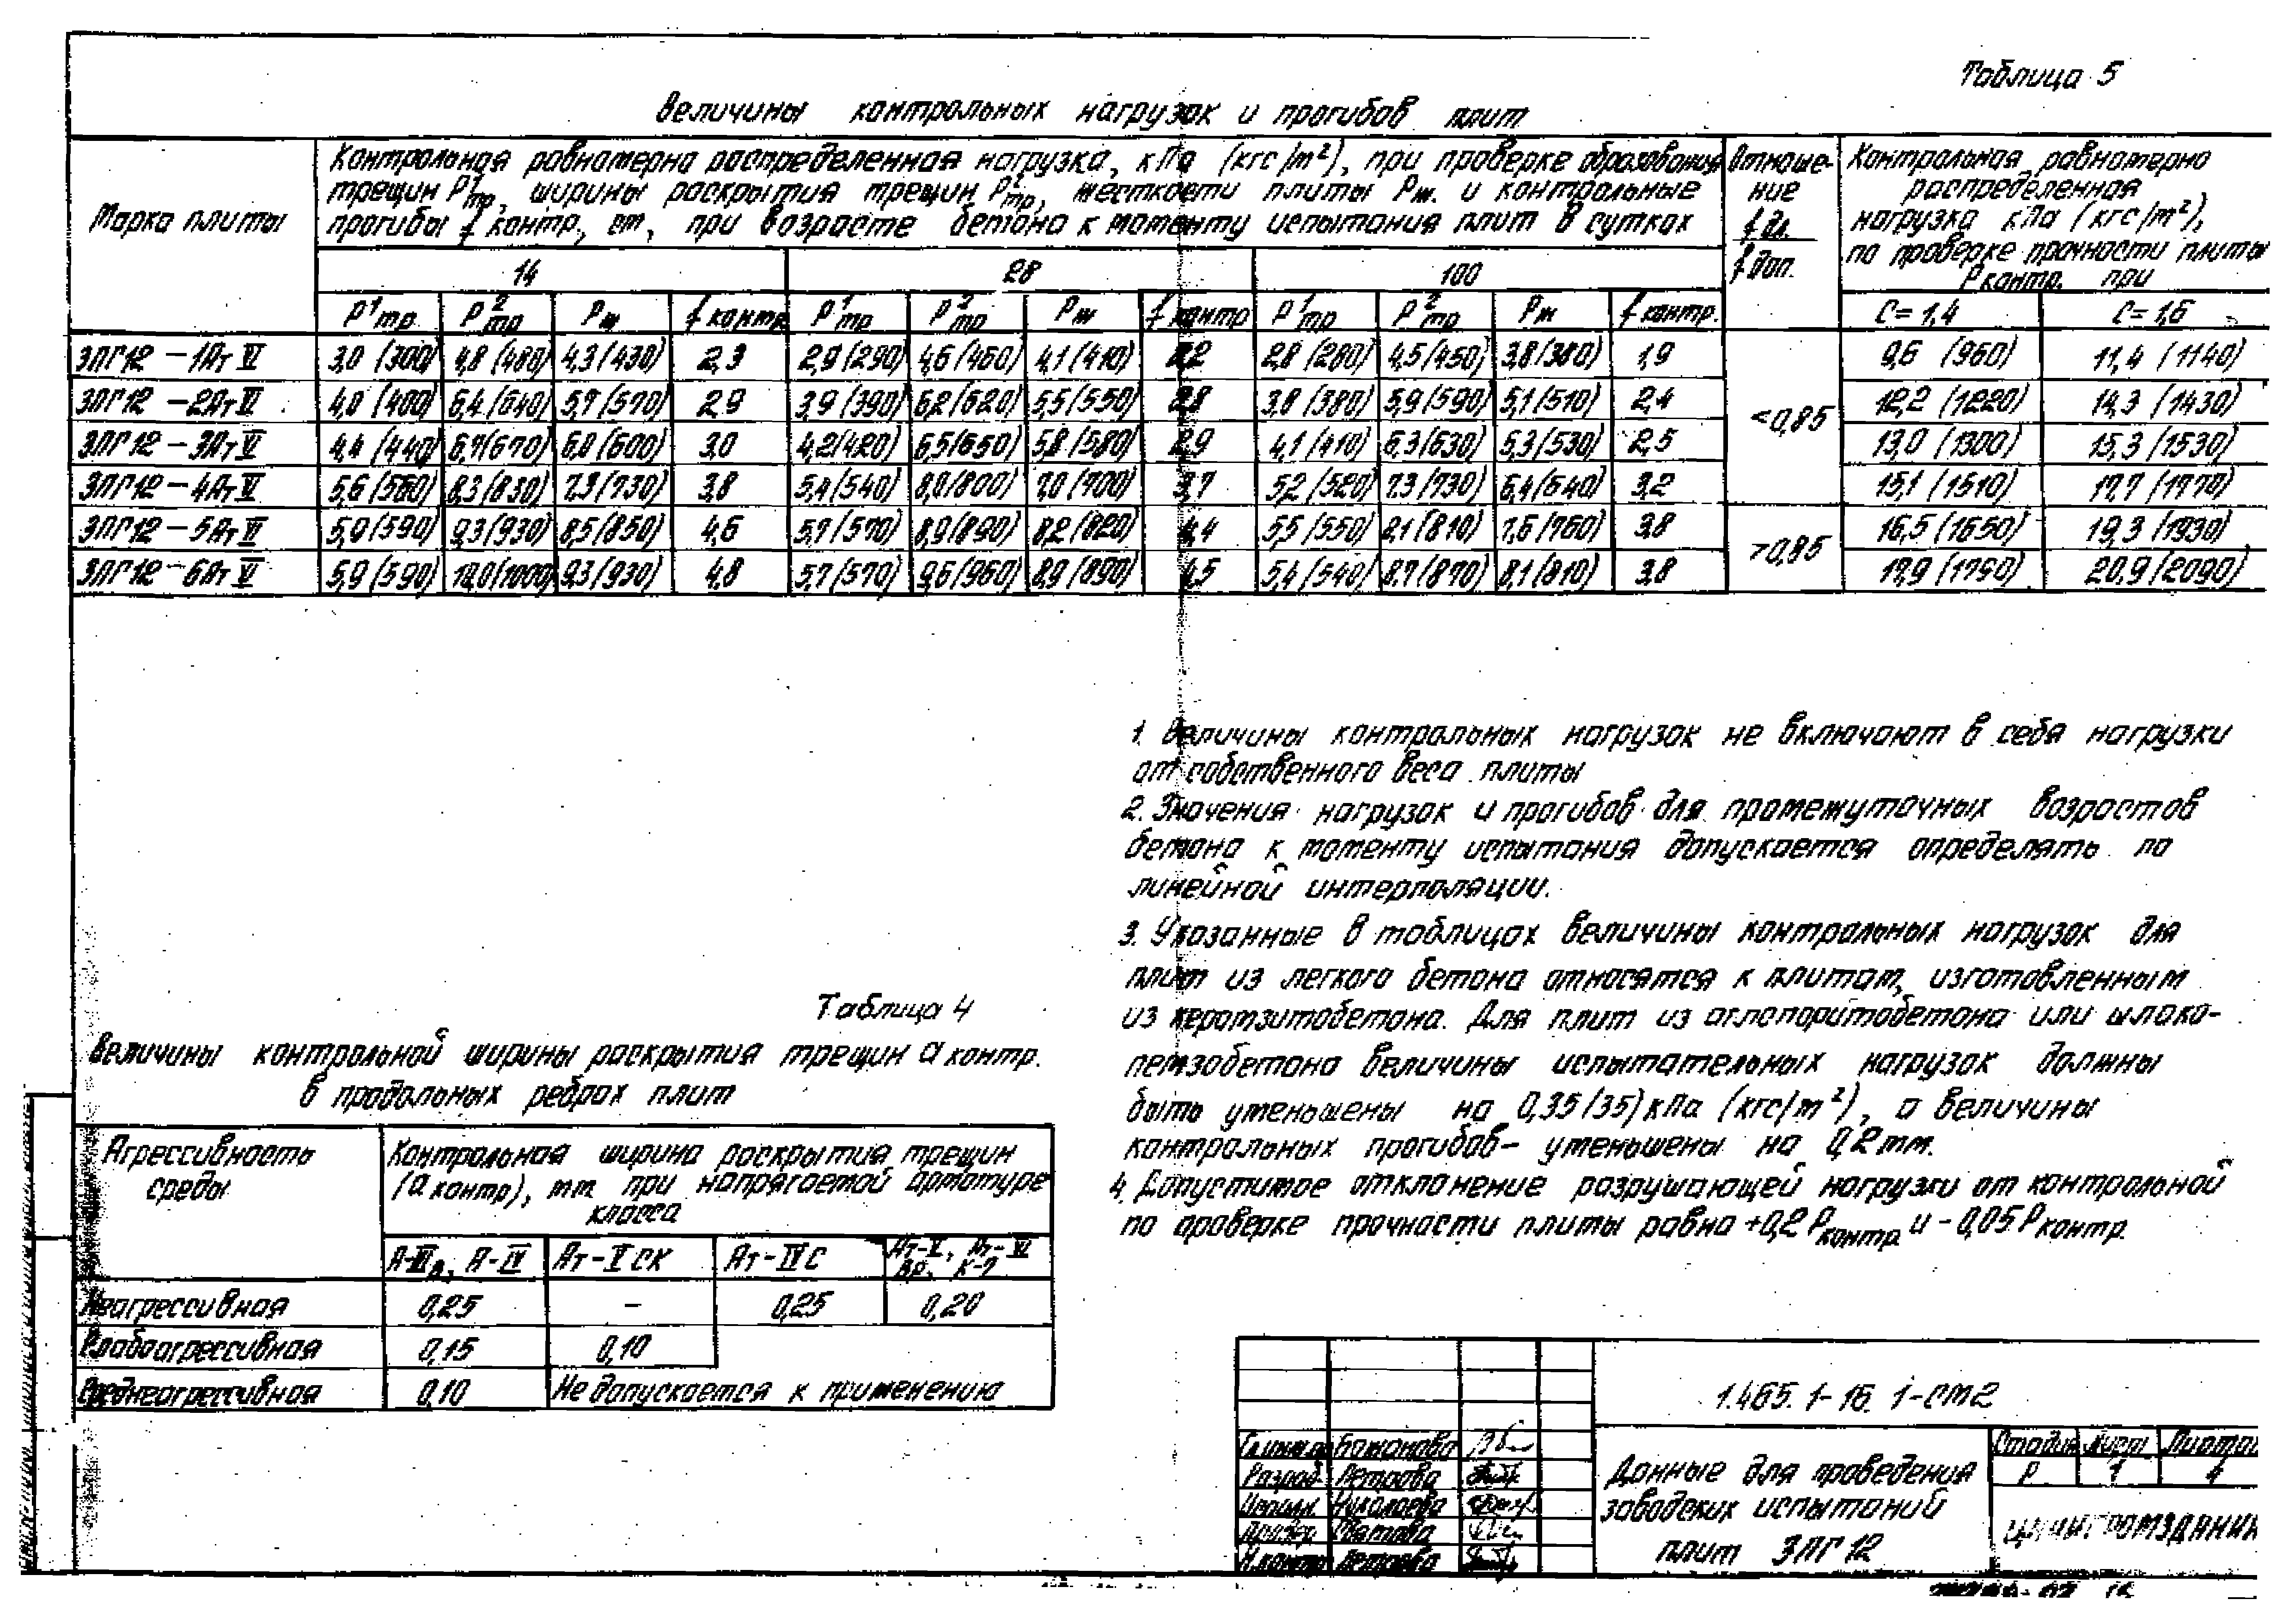 Таблица 5
Величины контрольных нагрузок и прогибов плит
Марка плиты
Контрольная равномерно распределенная нагрузка, кПа (кгс/m²), при проверке образования
трещин P¹тр, ширины раскрытия трещин P²тр, жесткости плиты Pж. и контрольные
прогибы f контр., cm, при возрасте бетона к моменту испытания плит в сутках
Отноше-
ние
f дл.
f доп.
Контрольная равномерно
распределенная
нагрузка кПа (кгс/m²),
по проверке прочности плиты
Pконтр. при
14 28 100
P¹тр P²тр Pж f контр P¹тр P²тр Pж f контр P¹тр P²тр Pж f контр. C=1,4 C=1,6
3ПГ12-1АтVI 3,0 (300) 4,8 (480) 4,3 (430) 2,3 2,9 (290) 4,6 (460) 4,1 (410) 2,2 2,8 (280) 4,5 (450) 3,8 (380) 1,9 9,6 (960) 11,4 (1140)
3ПГ12-2АтVI 4,0 (400) 6,4 (640) 5,7 (570) 2,9 3,9 (390) 6,2 (620) 5,5 (550) 2,8 3,8 (380) 5,9 (590) 5,1 (510) 2,4 <0,85 12,2 (1220) 14,3 (1430)
3ПГ12-3АтVI 4,4 (440) 6,7 (670) 6,0 (600) 3,0 4,2 (420) 6,5 (650) 5,8 (580) 2,9 4,1 (410) 6,3 (630) 5,3 (530) 2,5 13,0 (1300) 15,3 (1530)
3ПГ12-4АтVI 5,6 (560) 8,3 (830) 7,3 (730) 3,8 5,4 (540) 8,0 (800) 7,0 (700) 3,7 5,2 (520) 7,3 (730) 6,4 (640) 3,2 15,1 (1510) 17,7 (1770)
3ПГ12-5АтVI 5,9 (590) 9,3 (930) 8,5 (850) 4,6 5,7 (570) 8,9 (890) 8,2 (820) 4,4 5,5 (550) 8,1 (810) 7,6 (760) 3,8 >0,85 16,5 (1650) 19,3 (1930)
3ПГ12-6АтVI 5,9 (590) 10,0 (1000) 9,3 (930) 4,8 5,7 (570) 9,6 (960) 8,9 (890) 4,5 5,4 (540) 8,7 (870) 8,1 (810) 3,8 20,9 (2090)
1. Величины контрольных нагрузок не включают в себя нагрузки
от собственного веса плиты
2. Значения нагрузок и прогибов для промежуточных возрастов
бетона к моменту испытания допускается определять по
линейной интерполяции.
3. Указанные в таблицах величины контрольных нагрузок для
плит из легкого бетона относятся к плитам, изготовленным
из керамзитобетона. Для плит из аглопоритобетона или шлако-
пемзобетона величины испытательных нагрузок должны
быть уменьшены на 0,35 (35) кПа (кгс/m²), а величины
контрольных прогибов- уменьшены на 0,2 mm.
4. Допустимое отклонение разрушающей нагрузки от контрольной
по проверке прочности плиты равна +0,2 Pконтр и -0,05 Pконтр.
Таблица 4
Величины контрольной ширины раскрытия трещин a контр.
в продольных ребрах плит
Агрессивность
среды
Контрольная ширина раскрытия трещин
(a контр), mm при напрягаемой арматуре
класса
А-IIIв, А-IV Ат-V СК Ат-IV С Ат-V, Ат-VI
Вр, К-7
Неагрессивная 0,25 - 0,25 0,20
Слабоагрессивная 0,15 0,10
Среднеагрессивная 0,10 Не допускается к применению
1.465.1-16.1-СМ2
Гл.инж.пр Бажанова
Разраб. Петрова
Николаева
Провер.
Н.контр Петрова
Данные для проведения
заводских испытаний
плит 3ПГ12
Стадия Лист Листов
Р 1 4
ЦНИИПРОМЗДАНИЙ